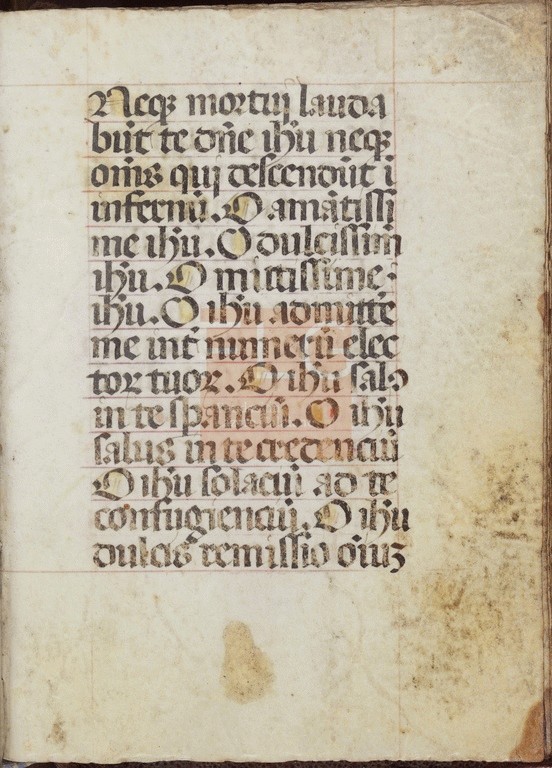 Neqꝫ mortuj lauda
būt te dn̄e ihū neqꝫ
om̄s quj descendūt ī
infernū. O amātissi
me ihū. O dulcissim
ihū. O mittissime
ihū. O ihū admitte
me int̄ numerū elec
tor tuor. O ihū salꝰ
in te spanciū. O ihū
salus in te credenciū
O ihū solaciū ad te
confugienciū. O ihū
dulcis remissio oīuꝫ